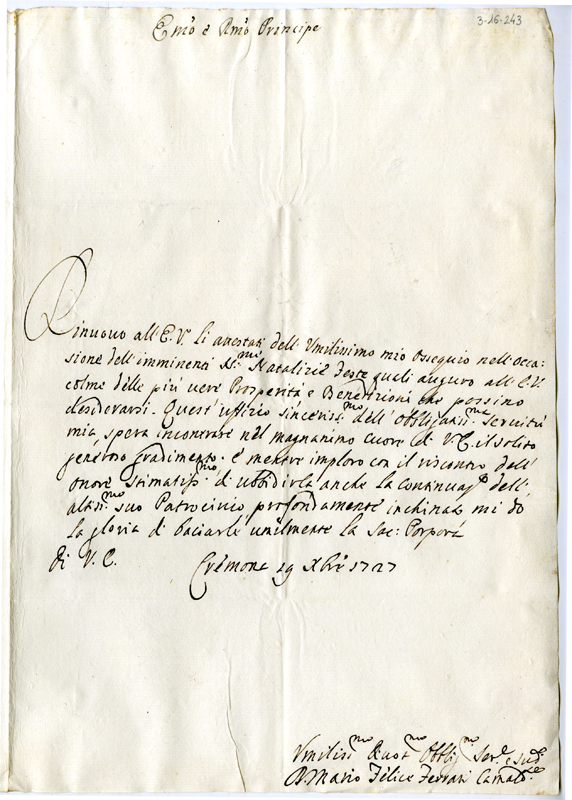 3-16-243
Em͞o e Rm͞o Principe
Rinuovo all' E. V. li attestati dell' Umilissimo mio Ossequio nell' occa:
sione dell' imminenti SS.me Natalizie feste quali auguro all' E. V.
colme delle più vere Prosperità e Benedizioni che possino
desiderarsi. Quest' uffizio sinceriss.mo dell' obbligatiss.ma servitù
mia, spera incontrare nel magnanimo cuore di V. E. il solito
generoso gradimento. e mentre imploro con il riscontro dell'
onore stimatiss.mo di ubbidirla anche la continuaz.e dell'
altiss.mo suo Patrocinio profondamente inchinato mi dò
la gloria di baciarle umilmente la Sac: Porpora
di V. E. Cremona 29 Xbre 1727
Umiliss.mo Divot.mo Obblig.mo Ser.e e
D. Mario Felice Ferrari Camald.e